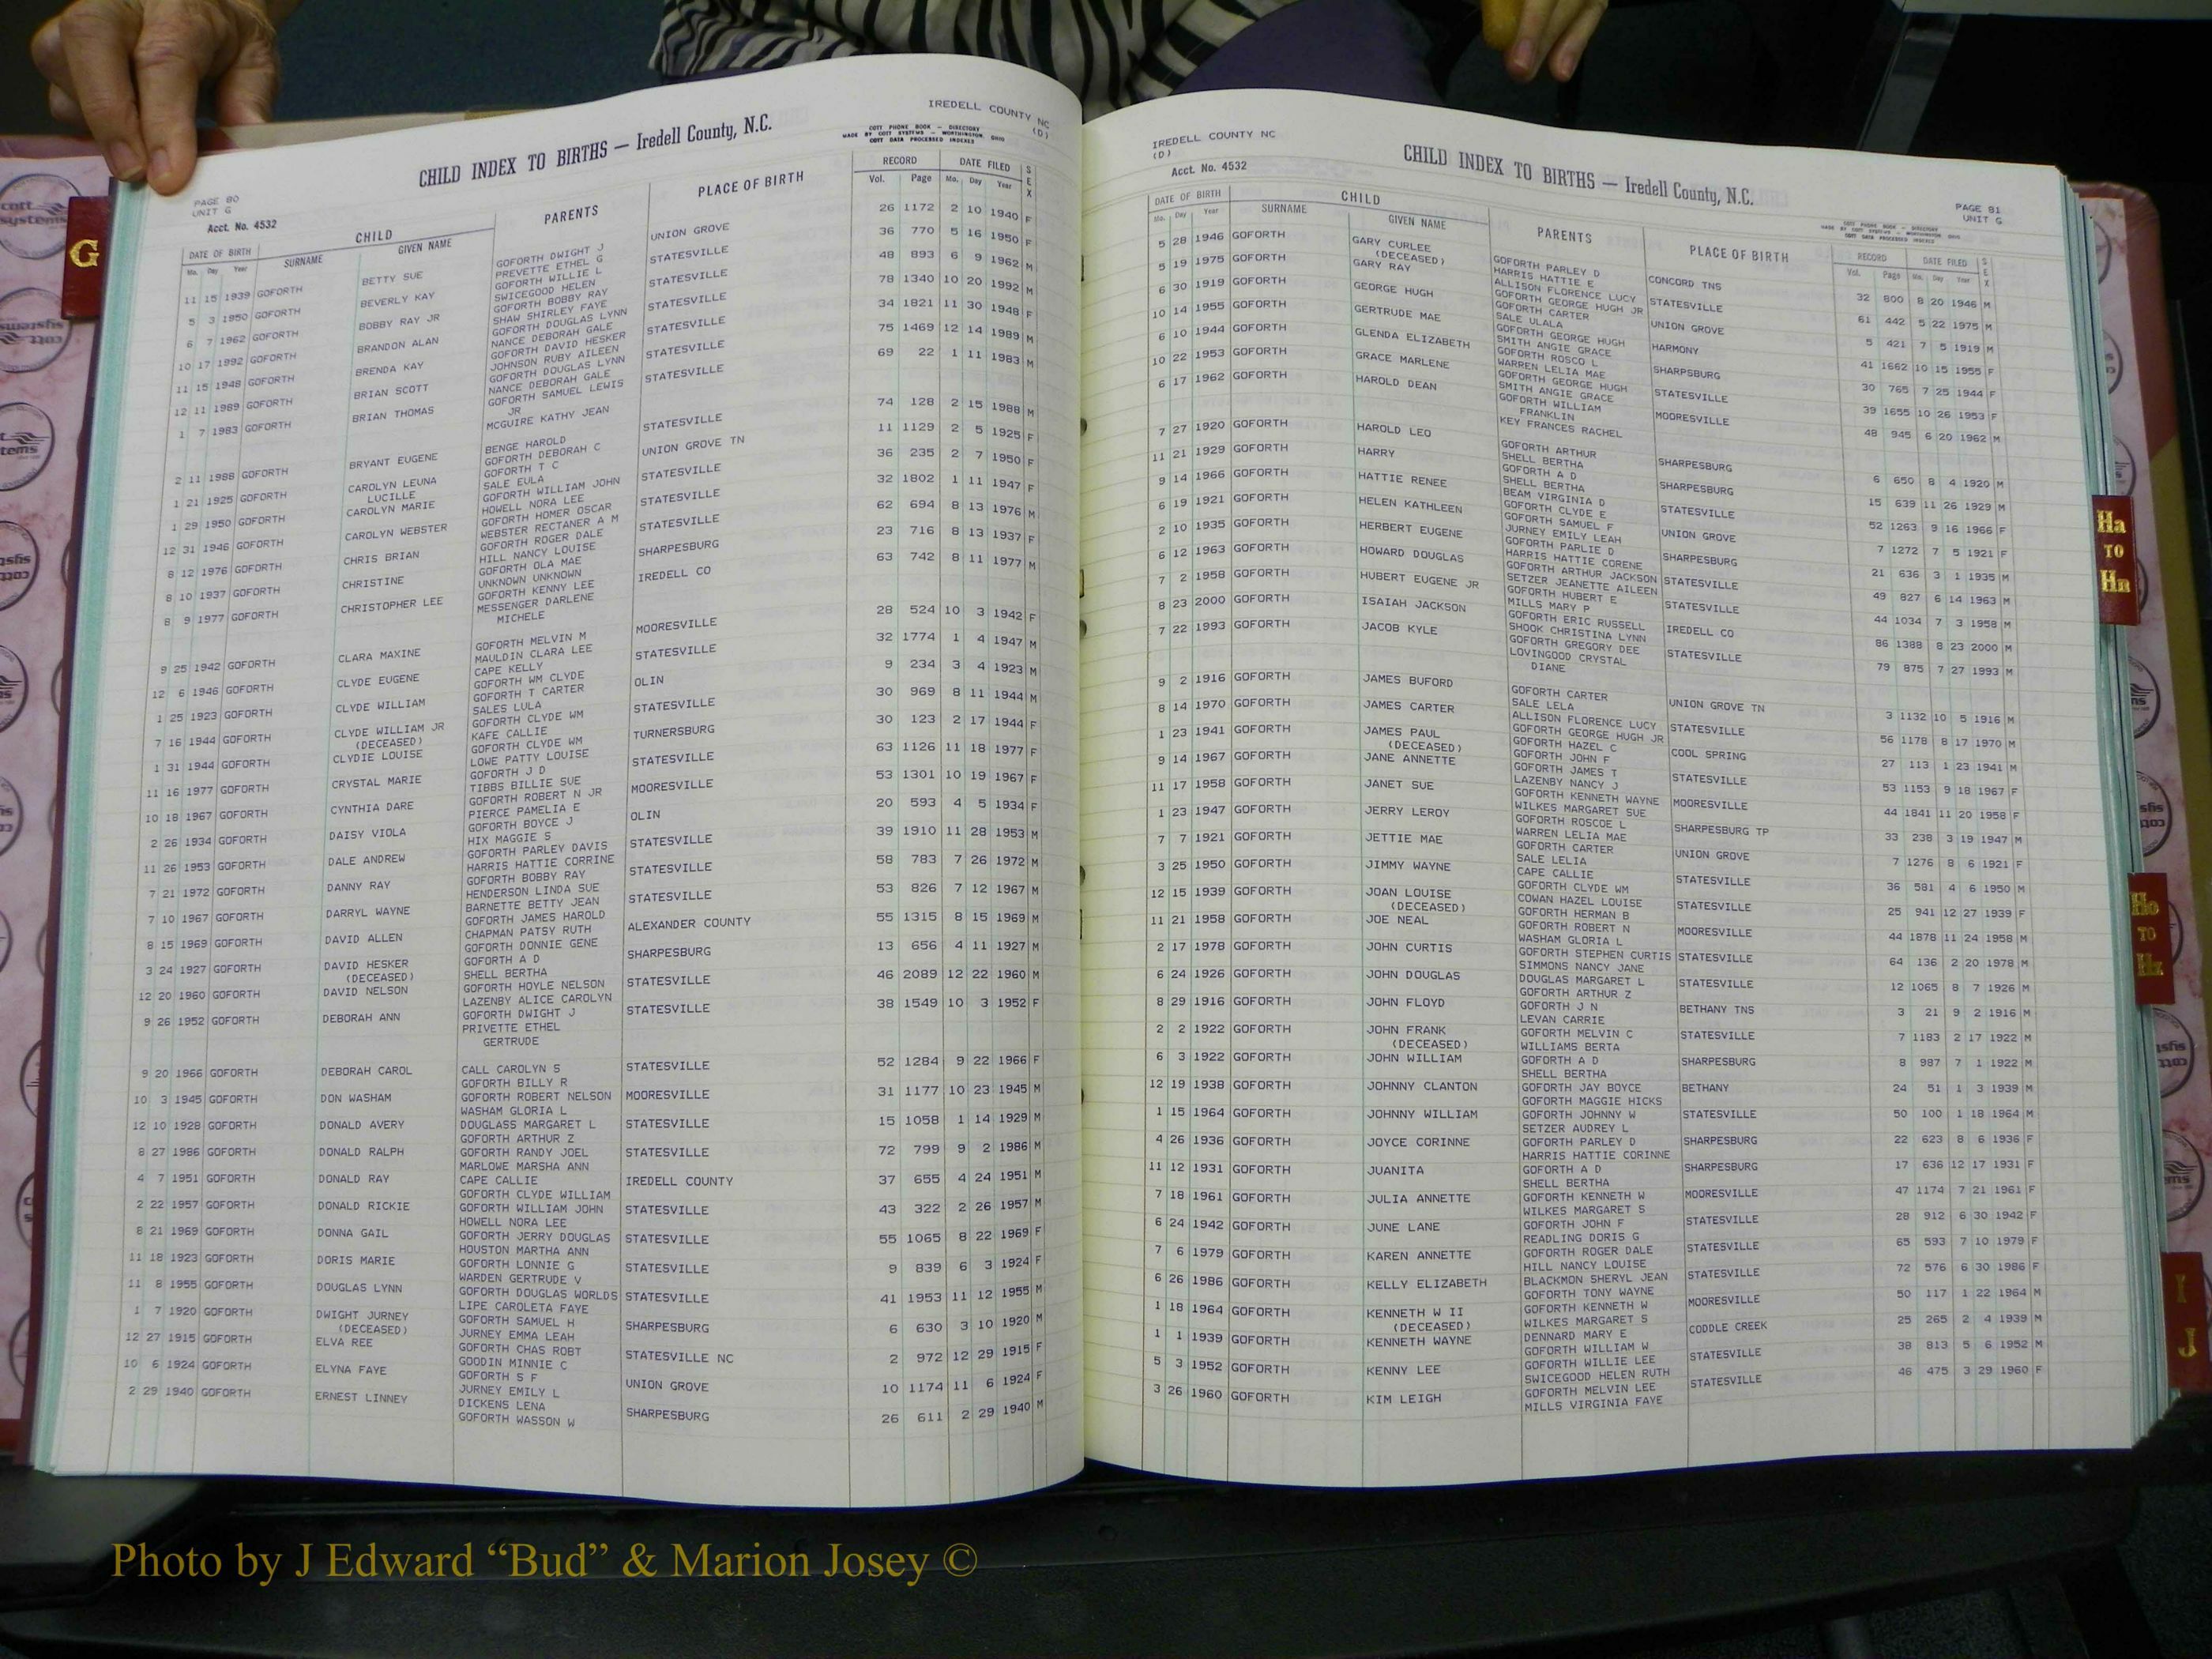 IREDELL COUNTY NC
(D)
CHILD INDEX TO BIRTHS — Iredell County, N.C.
COTT PHONE BOOK — DIRECTORY
MADE BY COTT SYSTEMS — WORTHINGTON, OHIO
COTT DATA PROCESSED INDEXES
PAGE 80
UNIT G
Acct. No. 4532
DATE OF BIRTH CHILD PARENTS PLACE OF BIRTH RECORD DATE FILED SEX
Mo. Day Year SURNAME GIVEN NAME Vol. Page Mo. Day Year
11 15 1939 GOFORTH BETTY SUE GOFORTH DWIGHT J UNION GROVE 26 1172 2 10 1940 F
PREVETTE ETHEL G
5 3 1950 GOFORTH BEVERLY KAY GOFORTH WILLIE L STATESVILLE 36 770 5 16 1950 F
SWICEGOOD HELEN
6 7 1962 GOFORTH BOBBY RAY JR GOFORTH BOBBY RAY STATESVILLE 48 893 6 9 1962 M
SHAW SHIRLEY FAYE
10 17 1992 GOFORTH BRANDON ALAN GOFORTH DOUGLAS LYNN STATESVILLE 78 1340 10 20 1992 M
NANCE DEBORAH GALE
11 15 1948 GOFORTH BRENDA KAY GOFORTH DAVID HESKER STATESVILLE 34 1821 11 30 1948 F
JOHNSON RUBY AILEEN
12 11 1989 GOFORTH BRIAN SCOTT GOFORTH DOUGLAS LYNN STATESVILLE 75 1469 12 14 1989 M
NANCE DEBORAH GALE
1 7 1983 GOFORTH BRIAN THOMAS GOFORTH SAMUEL LEWIS STATESVILLE 69 22 1 11 1983 M
JR
MCGUIRE KATHY JEAN
2 11 1988 GOFORTH BRYANT EUGENE BENGE HAROLD STATESVILLE 74 128 2 15 1988 M
GOFORTH DEBORAH C
1 21 1925 GOFORTH CAROLYN LEUNA GOFORTH T C UNION GROVE TN 11 1129 2 5 1925 F
LUCILLE SALE EULA
1 29 1950 GOFORTH CAROLYN MARIE GOFORTH WILLIAM JOHN STATESVILLE 36 235 2 7 1950 F
HOWELL NORA LEE
12 31 1946 GOFORTH CAROLYN WEBSTER GOFORTH HOMER OSCAR STATESVILLE 32 1802 1 11 1947 F
WEBSTER RECTANER A M
8 12 1976 GOFORTH CHRIS BRIAN GOFORTH ROGER DALE STATESVILLE 62 694 8 13 1976 M
HILL NANCY LOUISE
8 10 1937 GOFORTH CHRISTINE GOFORTH OLA MAE SHARPESBURG 23 716 8 13 1937 F
UNKNOWN UNKNOWN
8 9 1977 GOFORTH CHRISTOPHER LEE GOFORTH KENNY LEE IREDELL CO 63 742 8 11 1977 M
MESSENGER DARLENE
MICHELE
9 25 1942 GOFORTH CLARA MAXINE GOFORTH MELVIN M MOORESVILLE 28 524 10 3 1942 F
MAULDIN CLARA LEE
12 6 1946 GOFORTH CLYDE EUGENE CAPE KELLY STATESVILLE 32 1774 1 4 1947 M
GOFORTH WM CLYDE
1 25 1923 GOFORTH CLYDE WILLIAM GOFORTH T CARTER OLIN 9 234 3 4 1923 M
SALES LULA
7 16 1944 GOFORTH CLYDE WILLIAM JR GOFORTH CLYDE WM STATESVILLE 30 969 8 11 1944 M
(DECEASED) KAFE CALLIE
1 31 1944 GOFORTH CLYDIE LOUISE GOFORTH CLYDE WM TURNERSBURG 30 123 2 17 1944 F
LOWE PATTY LOUISE
11 16 1977 GOFORTH CRYSTAL MARIE GOFORTH J D STATESVILLE 63 1126 11 18 1977 F
TIBBS BILLIE SUE
10 18 1967 GOFORTH CYNTHIA DARE GOFORTH ROBERT N JR MOORESVILLE 53 1301 10 19 1967 F
PIERCE PAMELIA E
2 26 1934 GOFORTH DAISY VIOLA GOFORTH BOYCE J OLIN 20 593 4 5 1934 F
HIX MAGGIE S
11 26 1953 GOFORTH DALE ANDREW GOFORTH PARLEY DAVIS STATESVILLE 39 1910 11 28 1953 M
HARRIS HATTIE CORRINE
7 21 1972 GOFORTH DANNY RAY GOFORTH BOBBY RAY STATESVILLE 58 783 7 26 1972 M
HENDERSON LINDA SUE
7 10 1967 GOFORTH DARRYL WAYNE BARNETTE BETTY JEAN STATESVILLE 53 826 7 12 1967 M
GOFORTH JAMES HAROLD
8 15 1969 GOFORTH DAVID ALLEN CHAPMAN PATSY RUTH ALEXANDER COUNTY 55 1315 8 15 1969 M
GOFORTH DONNIE GENE
3 24 1927 GOFORTH DAVID HESKER GOFORTH A D SHARPESBURG 13 656 4 11 1927 M
(DECEASED) SHELL BERTHA
12 20 1960 GOFORTH DAVID NELSON GOFORTH HOYLE NELSON STATESVILLE 46 2089 12 22 1960 M
LAZENBY ALICE CAROLYN
9 26 1952 GOFORTH DEBORAH ANN GOFORTH DWIGHT J STATESVILLE 38 1549 10 3 1952 F
PRIVETTE ETHEL
GERTRUDE
9 20 1966 GOFORTH DEBORAH CAROL CALL CAROLYN S STATESVILLE 52 1284 9 22 1966 F
GOFORTH BILLY R
10 3 1945 GOFORTH DON WASHAM GOFORTH ROBERT NELSON MOORESVILLE 31 1177 10 23 1945 M
WASHAM GLORIA L
12 10 1928 GOFORTH DONALD AVERY DOUGLASS MARGARET L STATESVILLE 15 1058 1 14 1929 M
GOFORTH ARTHUR Z
8 27 1986 GOFORTH DONALD RALPH GOFORTH RANDY JOEL STATESVILLE 72 799 9 2 1986 M
MARLOWE MARSHA ANN
4 7 1951 GOFORTH DONALD RAY CAPE CALLIE IREDELL COUNTY 37 655 4 24 1951 M
GOFORTH CLYDE WILLIAM
2 22 1957 GOFORTH DONALD RICKIE GOFORTH WILLIAM JOHN STATESVILLE 43 322 2 26 1957 M
HOWELL NORA LEE
8 21 1969 GOFORTH DONNA GAIL GOFORTH JERRY DOUGLAS STATESVILLE 55 1065 8 22 1969 F
HOUSTON MARTHA ANN
11 18 1923 GOFORTH DORIS MARIE GOFORTH LONNIE G STATESVILLE 9 839 6 3 1924 F
WARDEN GERTRUDE V
11 8 1955 GOFORTH DOUGLAS LYNN GOFORTH DOUGLAS WORLDS STATESVILLE 41 1953 11 12 1955 M
LIPE CAROLETA FAYE
1 7 1920 GOFORTH DWIGHT JURNEY GOFORTH SAMUEL H SHARPESBURG 6 630 3 10 1920 M
(DECEASED) JURNEY EMMA LEAH
12 27 1915 GOFORTH ELVA REE GOFORTH CHAS ROBT STATESVILLE NC 2 972 12 29 1915 F
GOODIN MINNIE C
10 6 1924 GOFORTH ELYNA FAYE GOFORTH S F UNION GROVE 10 1174 11 6 1924 F
JURNEY EMILY L
2 29 1940 GOFORTH ERNEST LINNEY DICKENS LENA SHARPESBURG 26 611 2 29 1940 M
GOFORTH WASSON W
IREDELL COUNTY NC
(D)
Acct. No. 4532
CHILD INDEX TO BIRTHS — Iredell County, N.C.
PAGE 81
UNIT G
COTT PHONE BOOK — DIRECTORY
MADE BY COTT SYSTEMS — WORTHINGTON, OHIO
COTT DATA PROCESSED INDEXES
DATE OF BIRTH CHILD PARENTS PLACE OF BIRTH RECORD DATE FILED SEX
Mo. Day Year SURNAME GIVEN NAME Vol. Page Mo. Day Year
5 28 1946 GOFORTH GARY CURLEE GOFORTH PARLEY D CONCORD TNS 32 800 8 20 1946 M
(DECEASED) HARRIS HATTIE E
5 19 1975 GOFORTH GARY RAY ALLISON FLORENCE LUCY STATESVILLE 61 442 5 22 1975 M
GOFORTH GEORGE HUGH JR
6 30 1919 GOFORTH GEORGE HUGH GOFORTH CARTER UNION GROVE 5 421 7 5 1919 M
SALE ULALA
10 14 1955 GOFORTH GERTRUDE MAE GOFORTH GEORGE HUGH HARMONY 41 1662 10 15 1955 F
SMITH ANGIE GRACE
6 10 1944 GOFORTH GLENDA ELIZABETH GOFORTH ROSCO L SHARPSBURG 30 765 7 25 1944 F
WARREN LELIA MAE
10 22 1953 GOFORTH GRACE MARLENE GOFORTH GEORGE HUGH STATESVILLE 39 1655 10 26 1953 F
SMITH ANGIE GRACE
6 17 1962 GOFORTH HAROLD DEAN GOFORTH WILLIAM MOORESVILLE 48 945 6 20 1962 M
FRANKLIN
KEY FRANCES RACHEL
7 27 1920 GOFORTH HAROLD LEO GOFORTH ARTHUR SHARPESBURG 6 650 8 4 1920 M
SHELL BERTHA
11 21 1929 GOFORTH HARRY GOFORTH A D SHARPESBURG 15 639 11 26 1929 M
SHELL BERTHA
9 14 1966 GOFORTH HATTIE RENEE BEAM VIRGINIA D STATESVILLE 52 1263 9 16 1966 F
GOFORTH CLYDE E
6 19 1921 GOFORTH HELEN KATHLEEN GOFORTH SAMUEL F UNION GROVE 7 1272 7 5 1921 F
JURNEY EMILY LEAH
2 10 1935 GOFORTH HERBERT EUGENE GOFORTH PARLIE D SHARPESBURG 21 636 3 1 1935 M
HARRIS HATTIE CORENE
6 12 1963 GOFORTH HOWARD DOUGLAS GOFORTH ARTHUR JACKSON STATESVILLE 49 827 6 14 1963 M
SETZER JEANETTE AILEEN
7 2 1958 GOFORTH HUBERT EUGENE JR GOFORTH HUBERT E STATESVILLE 44 1034 7 3 1958 M
MILLS MARY P
8 23 2000 GOFORTH ISAIAH JACKSON GOFORTH ERIC RUSSELL IREDELL CO 86 1388 8 23 2000 M
SHOOK CHRISTINA LYNN
7 22 1993 GOFORTH JACOB KYLE GOFORTH GREGORY DEE STATESVILLE 79 875 7 27 1993 M
LOVINGOOD CRYSTAL
DIANE
9 2 1916 GOFORTH JAMES BUFORD GOFORTH CARTER UNION GROVE TN 3 1132 10 5 1916 M
SALE LELA
8 14 1970 GOFORTH JAMES CARTER ALLISON FLORENCE LUCY STATESVILLE 56 1178 8 17 1970 M
GOFORTH GEORGE HUGH JR
1 23 1941 GOFORTH JAMES PAUL GOFORTH HAZEL C COOL SPRING 27 113 1 23 1941 M
(DECEASED) GOFORTH JOHN F
9 14 1967 GOFORTH JANE ANNETTE GOFORTH JAMES T STATESVILLE 53 1153 9 18 1967 F
LAZENBY NANCY J
11 17 1958 GOFORTH JANET SUE GOFORTH KENNETH WAYNE MOORESVILLE 44 1841 11 20 1958 F
WILKES MARGARET SUE
1 23 1947 GOFORTH JERRY LEROY GOFORTH ROSCOE L SHARPESBURG TP 33 238 3 19 1947 M
WARREN LELIA MAE
7 7 1921 GOFORTH JETTIE MAE GOFORTH CARTER UNION GROVE 7 1276 8 6 1921 F
SALE LELIA
3 25 1950 GOFORTH JIMMY WAYNE CAPE CALLIE STATESVILLE 36 581 4 6 1950 M
GOFORTH CLYDE WM
12 15 1939 GOFORTH JOAN LOUISE COWAN HAZEL LOUISE STATESVILLE 25 941 12 27 1939 F
(DECEASED) GOFORTH HERMAN B
11 21 1958 GOFORTH JOE NEAL GOFORTH ROBERT N MOORESVILLE 44 1878 11 24 1958 M
WASHAM GLORIA L
2 17 1978 GOFORTH JOHN CURTIS GOFORTH STEPHEN CURTIS STATESVILLE 64 136 2 20 1978 M
SIMMONS NANCY JANE
6 24 1926 GOFORTH JOHN DOUGLAS DOUGLAS MARGARET L STATESVILLE 12 1065 8 7 1926 M
GOFORTH ARTHUR Z
8 29 1916 GOFORTH JOHN FLOYD GOFORTH J N BETHANY TNS 3 21 9 2 1916 M
LEVAN CARRIE
2 2 1922 GOFORTH JOHN FRANK GOFORTH MELVIN C STATESVILLE 7 1183 2 17 1922 M
(DECEASED) WILLIAMS BERTA
6 3 1922 GOFORTH JOHN WILLIAM GOFORTH A D SHARPESBURG 8 987 7 1 1922 M
SHELL BERTHA
12 19 1938 GOFORTH JOHNNY CLANTON GOFORTH JAY BOYCE BETHANY 24 51 1 3 1939 M
GOFORTH MAGGIE HICKS
1 15 1964 GOFORTH JOHNNY WILLIAM GOFORTH JOHNNY W STATESVILLE 50 100 1 18 1964 M
SETZER AUDREY L
4 26 1936 GOFORTH JOYCE CORINNE GOFORTH PARLEY D SHARPESBURG 22 623 8 6 1936 F
HARRIS HATTIE CORINNE
11 12 1931 GOFORTH JUANITA GOFORTH A D SHARPESBURG 17 636 12 17 1931 F
SHELL BERTHA
7 18 1961 GOFORTH JULIA ANNETTE GOFORTH KENNETH W MOORESVILLE 47 1174 7 21 1961 F
WILKES MARGARET S
6 24 1942 GOFORTH JUNE LANE GOFORTH JOHN F STATESVILLE 28 912 6 30 1942 F
READLING DORIS G
7 6 1979 GOFORTH KAREN ANNETTE GOFORTH ROGER DALE STATESVILLE 65 593 7 10 1979 F
HILL NANCY LOUISE
6 26 1986 GOFORTH KELLY ELIZABETH BLACKMON SHERYL JEAN STATESVILLE 72 576 6 30 1986 F
GOFORTH TONY WAYNE
1 18 1964 GOFORTH KENNETH W II GOFORTH KENNETH W MOORESVILLE 50 117 1 22 1964 M
(DECEASED) WILKES MARGARET S
1 1 1939 GOFORTH KENNETH WAYNE DENNARD MARY E CODDLE CREEK 25 265 2 4 1939 M
GOFORTH WILLIAM W
5 3 1952 GOFORTH KENNY LEE GOFORTH WILLIE LEE STATESVILLE 38 813 5 6 1952 M
SWICEGOOD HELEN RUTH
3 26 1960 GOFORTH KIM LEIGH GOFORTH MELVIN LEE STATESVILLE 46 475 3 29 1960 F
MILLS VIRGINIA FAYE
G
Ha
TO
Hn
Ho
TO
Hz
I
J
cott
systems
Photo by J Edward “Bud” & Marion Josey ©